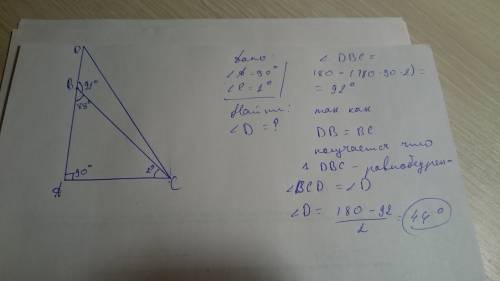 D
B 92°
88°
A 90°
2° C
Дано:
∠A = 90°
∠C = 2°
Найти:
∠D = ?
∠ DBC =
180 - (180-90-2) =
= 92°
так как
DB = BC
получается что
Δ DBC - равнобедрен-
∠BCD = ∠D
∠D = 180 - 92 / 2 = 44°